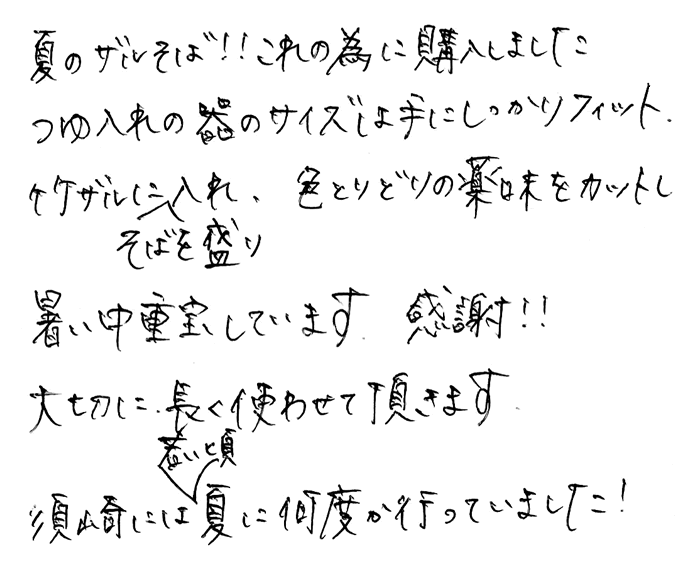 夏のザルそば!!これの為に購入しました
つゆ入れの器のサイズは手にしっかりフィット.
竹ザルに入れ、色とりどりの薬味をカットし
そばを盛り
暑い中重宝しています. 感謝!!
大切に.長く使わせて頂きます.
若い頃
須崎には夏に何度か行っていました!